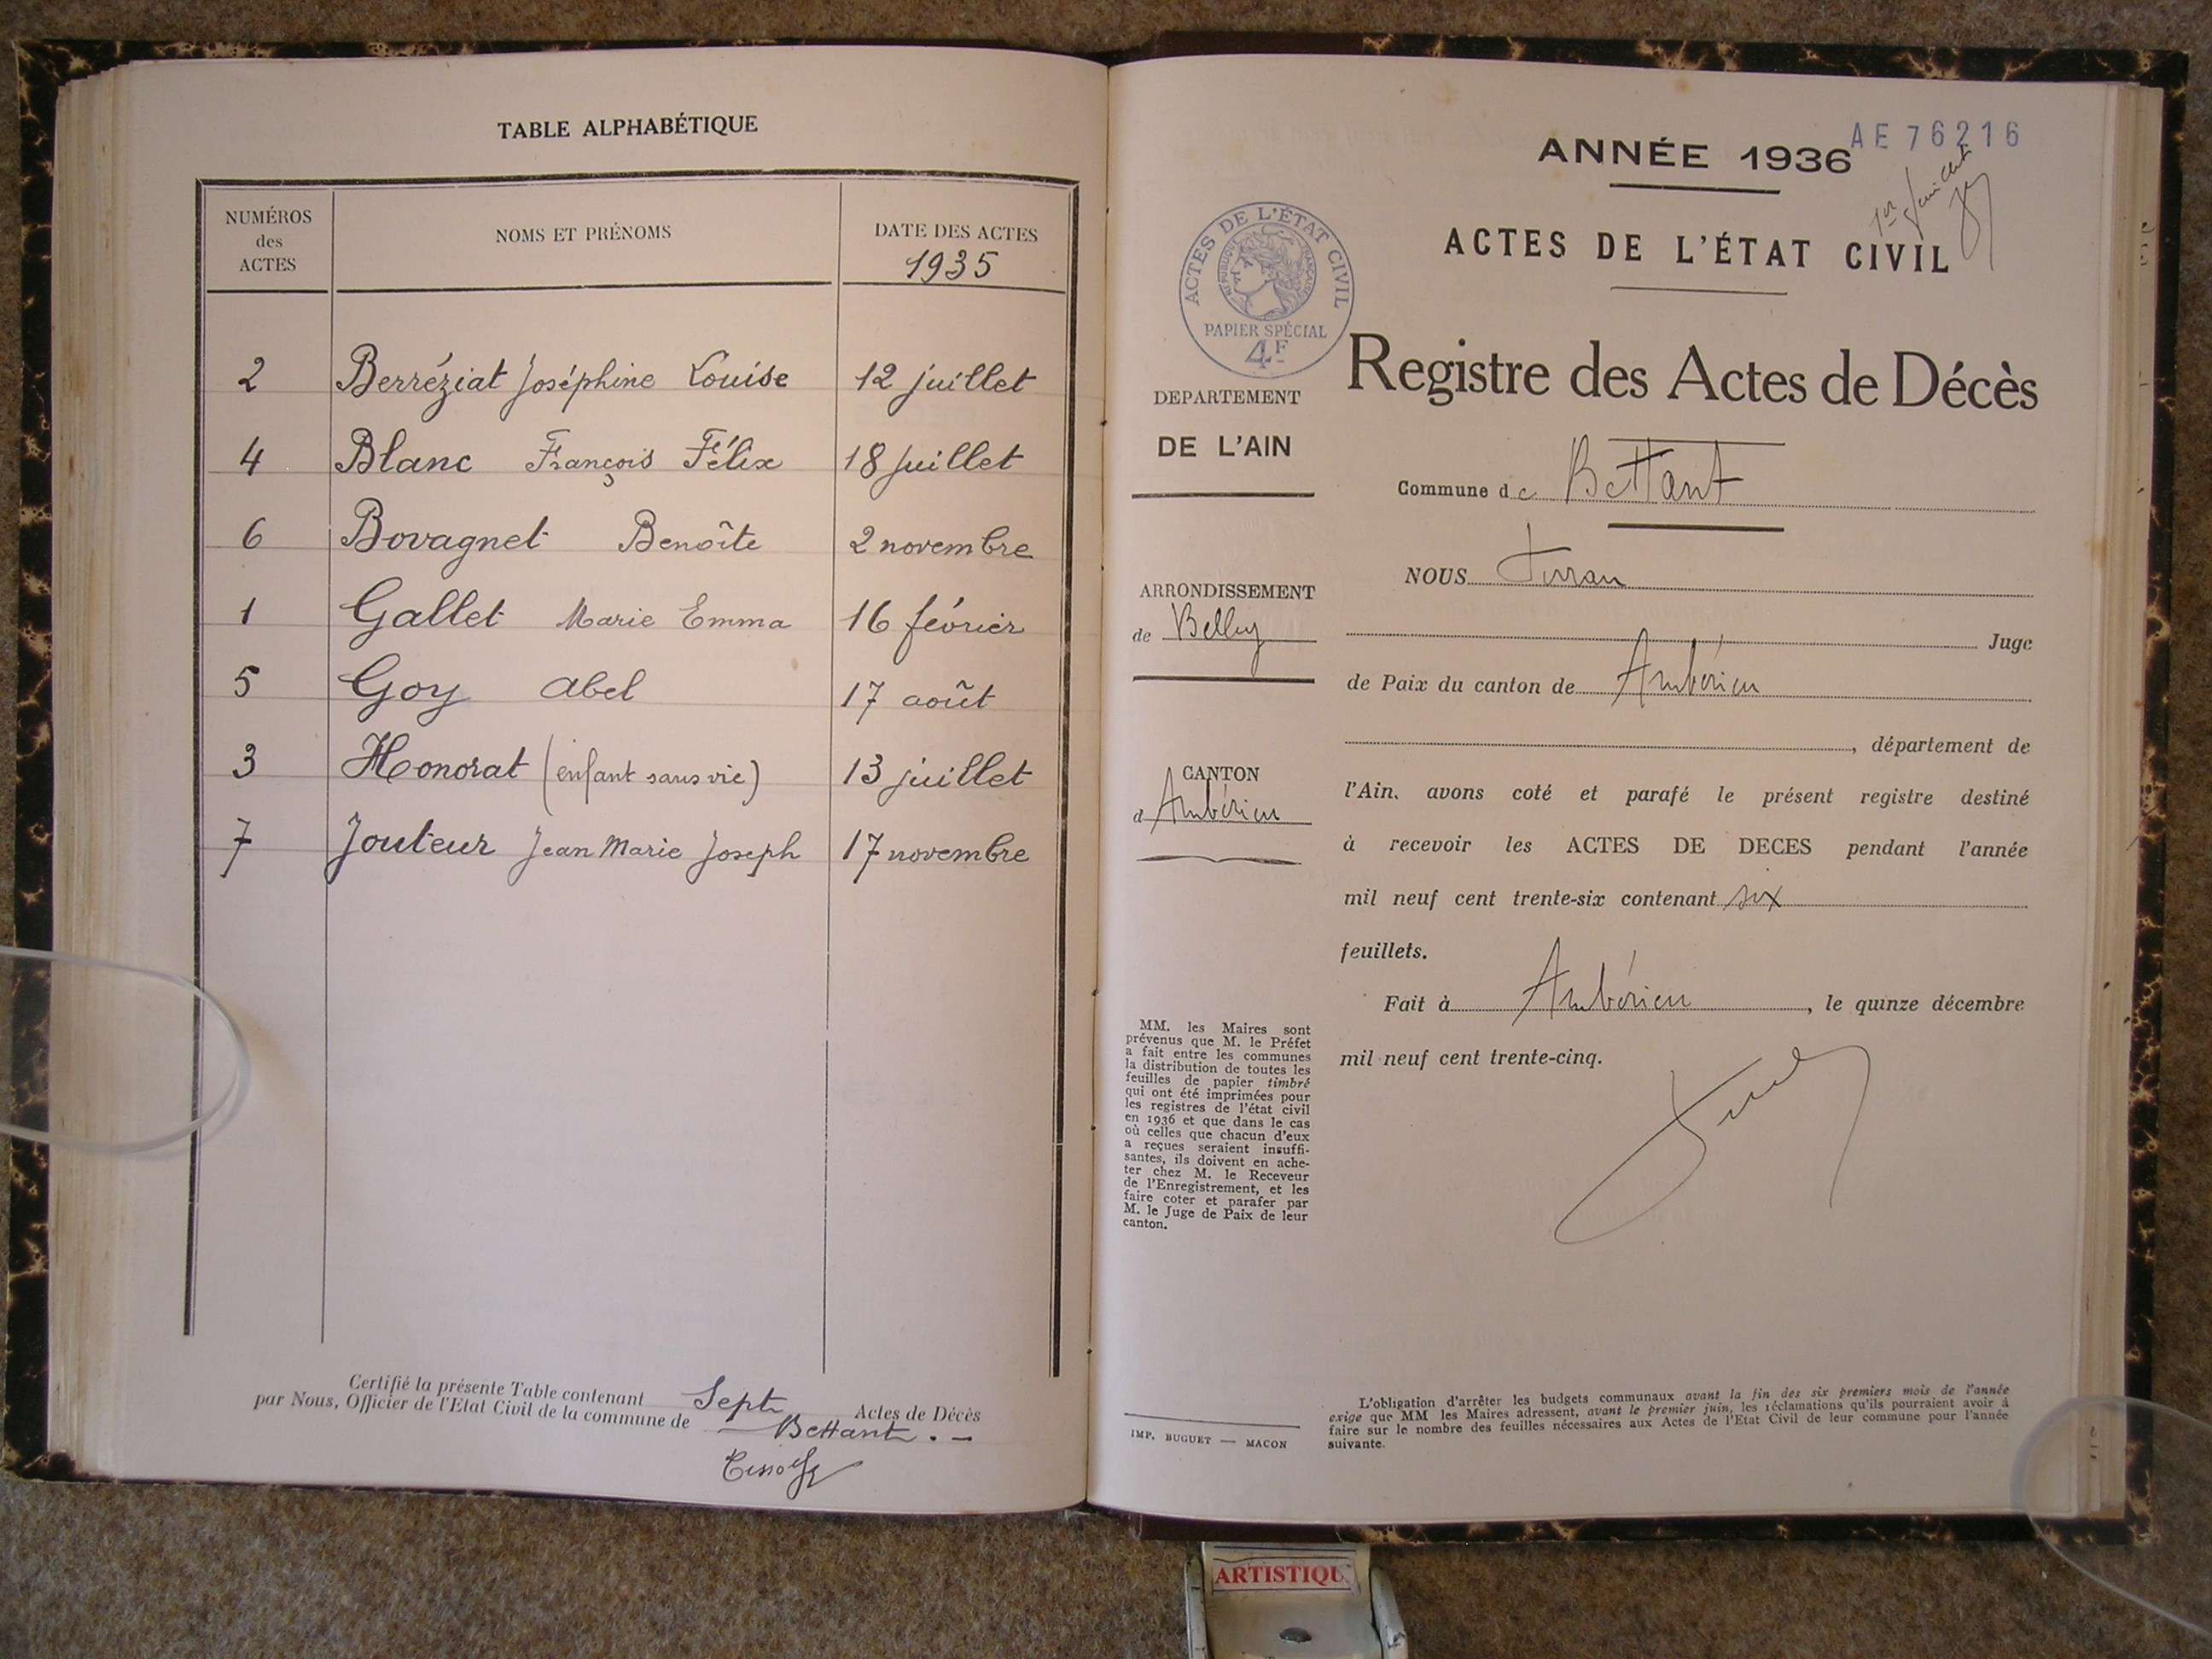 TABLE ALPHABÉTIQUE
NUMÉROS des ACTES
NOMS ET PRÉNOMS
DATE DES ACTES
1935
2 Berréziat Joséphine Louise 12 juillet
4 Blanc François Félix 18 juillet
6 Bovagnet Benoîte 2 novembre
1 Gallet Marie Emma 16 février
5 Goy Abel 17 août
3 Honorat (enfant sans vie) 13 juillet
7 Jouteur Jean Marie Joseph 17 novembre
Certifié la présente Table contenant Sept Actes de Décès
par Nous, Officier de l'Etat Civil de la commune de Bettant. -
AE 76216
ANNÉE 1936
1er
ACTES DE L'ÉTAT CIVIL
ACTES DE L'ÉTAT CIVIL
RÉPUBLIQUE FRANÇAISE
PAPIER SPÉCIAL
4F
Registre des Actes de Décès
DEPARTEMENT
DE L'AIN
Commune de Bettant
NOUS
ARRONDISSEMENT
de Belley
Juge
de Paix du canton de Ambérieu
, département de
CANTON
d'Ambérieu
l'Ain, avons coté et parafé le présent registre destiné
à recevoir les ACTES DE DECES pendant l'année
mil neuf cent trente-six contenant six
feuillets.
Fait à Ambérieu, le quinze décembre
mil neuf cent trente-cinq.
MM. les Maires sont
prévenus que M. le Préfet
a fait entre les communes
la distribution de toutes les
feuilles de papier timbré
qui ont été imprimées pour
les registres de l'état civil
en 1936 et que dans le cas
où celles que chacun d'eux
a reçues seraient insuffi-
santes, ils doivent en ache-
ter chez M. le Receveur
de l'Enregistrement, et les
faire coter et parafer par
M. le Juge de Paix de leur
canton.
IMP. BUGUET — MACON
L'obligation d'arrêter les budgets communaux avant la fin des six premiers mois de l'année
exige que MM les Maires adressent, avant le premier juin, les réclamations qu'ils pourraient avoir à
faire sur le nombre des feuilles nécessaires aux Actes de l'Etat Civil de leur commune pour l'année
suivante.
ARTISTIQU